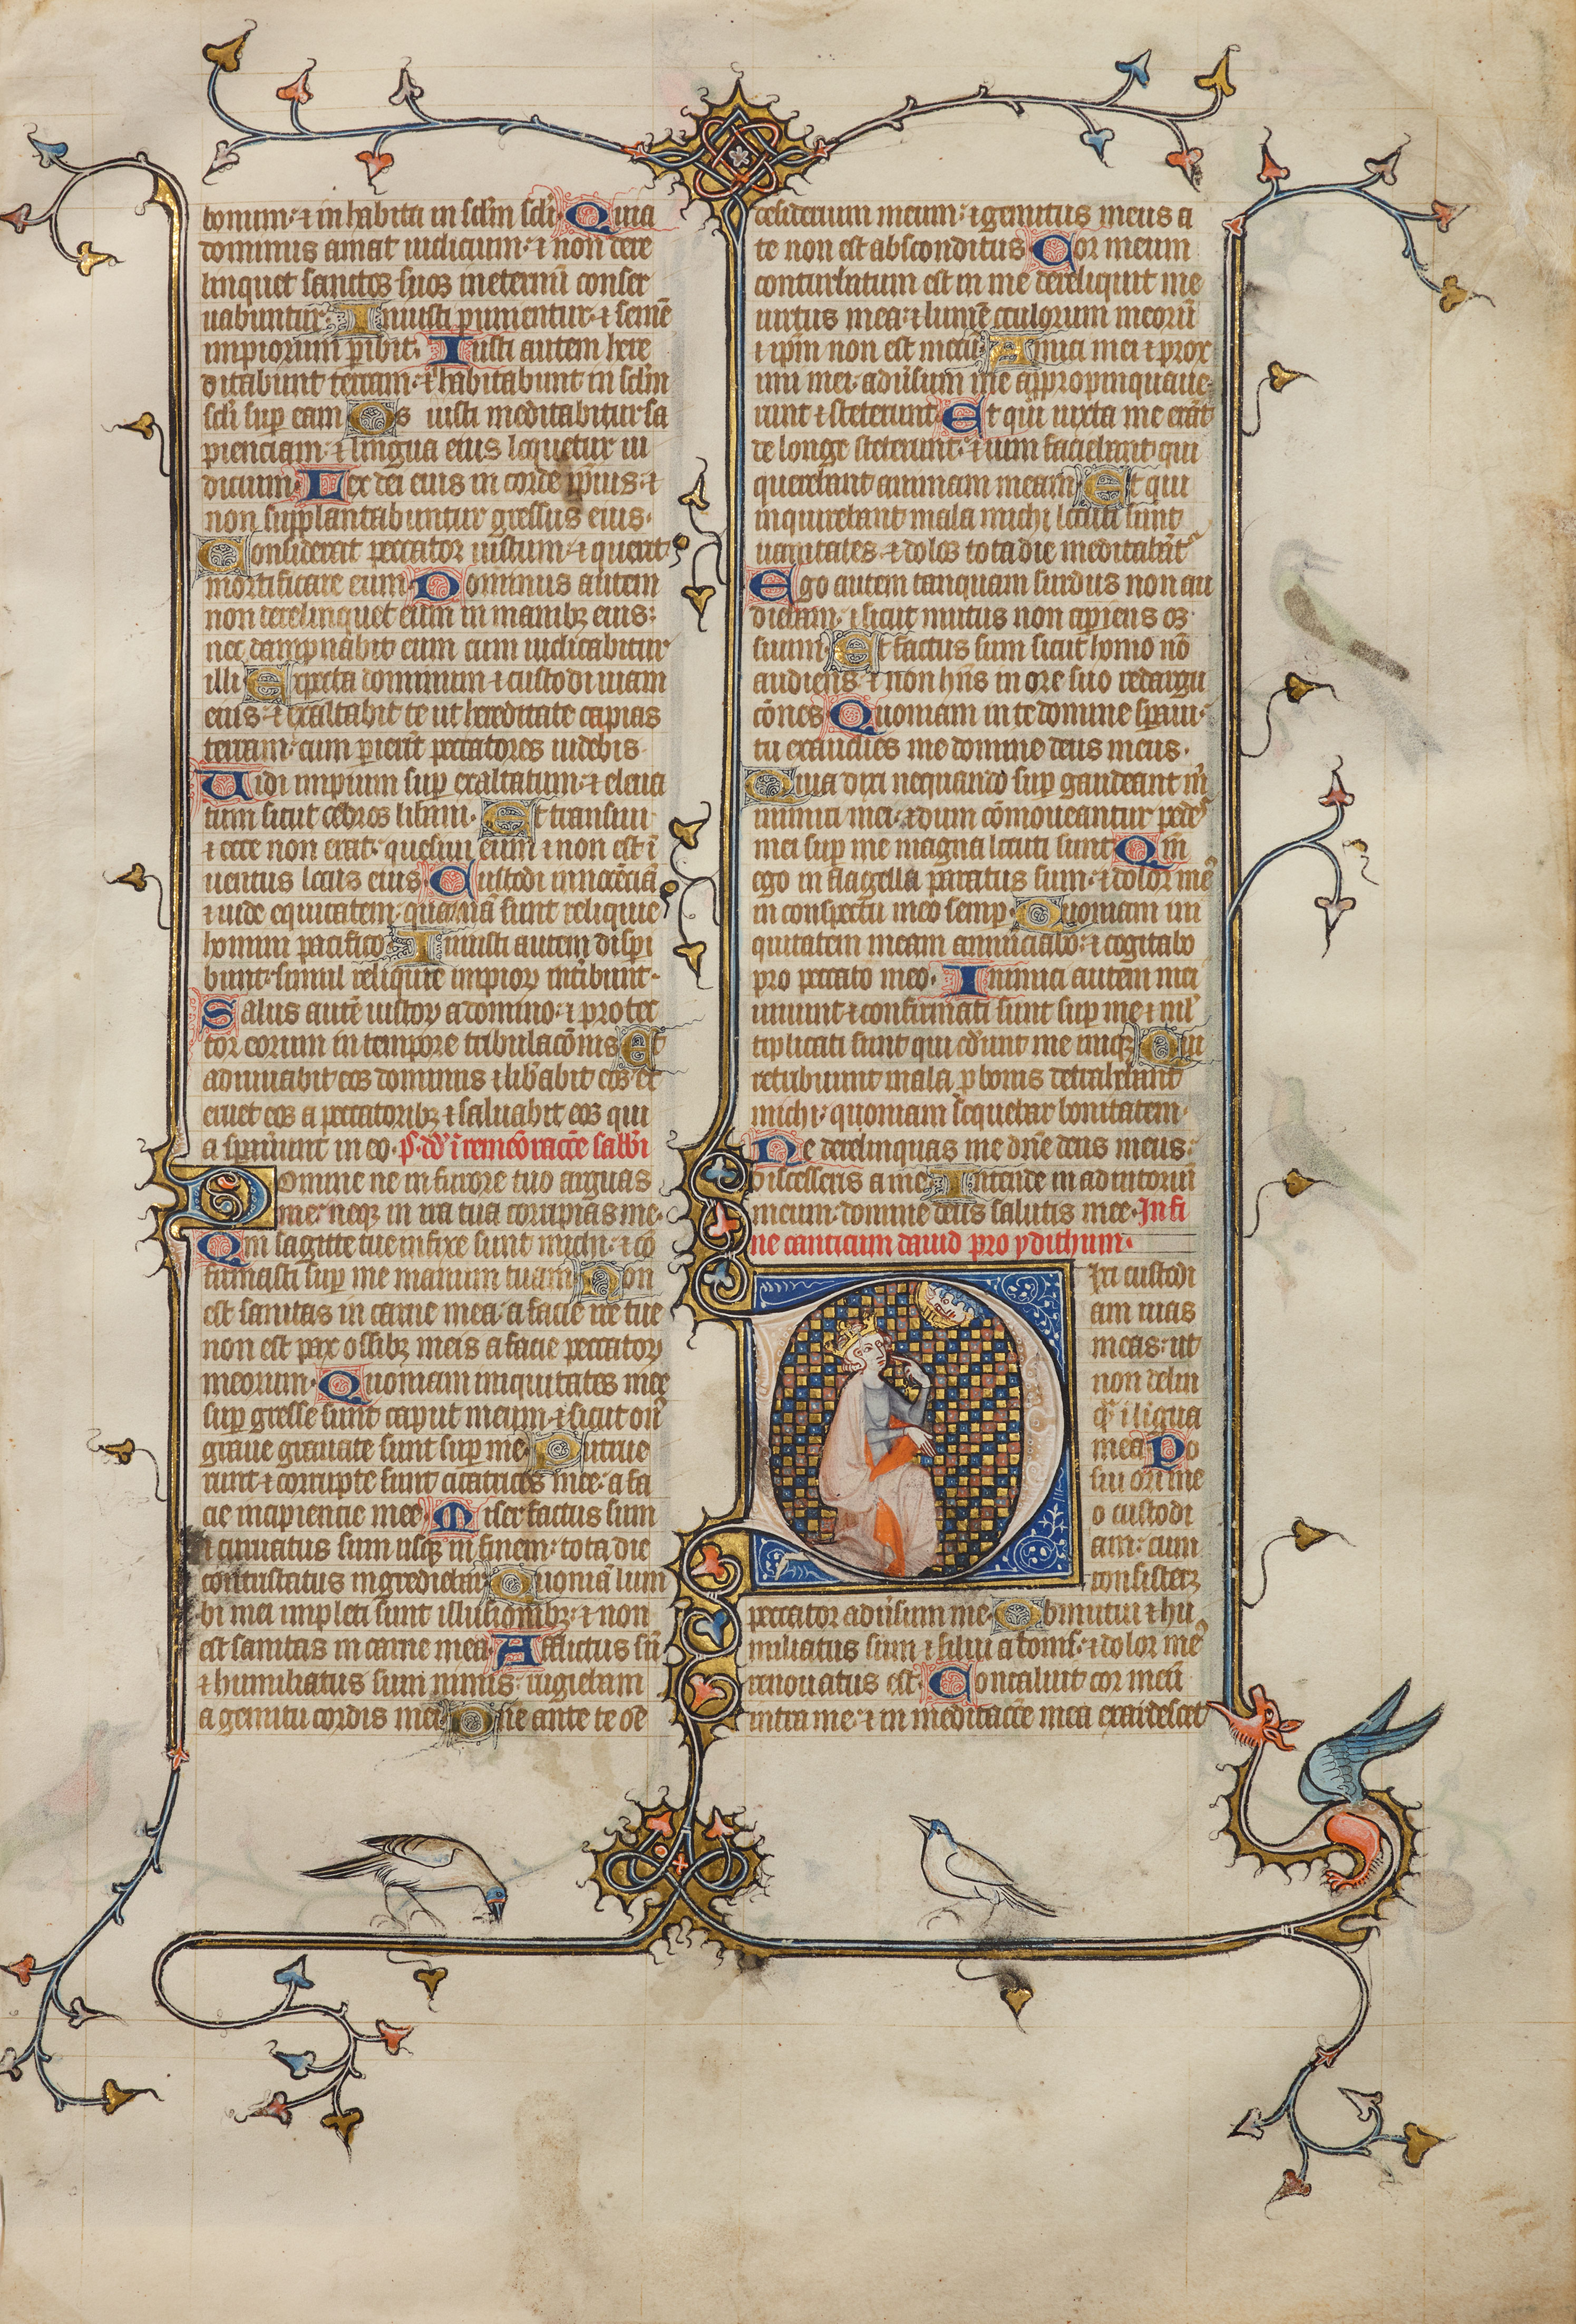 bonum: ⁊ in habita in sclm scli. Quia
dominus amat iudicium: ⁊ non dere
linquet sanctos suos in eternū conser
uabuntur. Iniusti punientur: ⁊ semē
impiorum ꝑibit. Iusti autem here
ditabunt terram: ⁊ habitabunt in sclm
scli suꝑ eam. Os iusti meditabitur sa
pienciam: ⁊ lingua eius loquetur iu
dicium. Lex dei eius in corde ip̄ius: ⁊
non supplantabuntur gressus eius.
Considerat peccator iustum: ⁊ querit
mortificare eum. Dominus autem
non derelinquet eum in manibꝫ eius:
nec dampnabit eum cum iudicabitur
illi. Expecta dominum ⁊ custodi uiam
eius: ⁊ exaltabit te ut hereditate capias
terram: cum ꝑierīt peccatores uidebis.
Uidi impium suꝑ exaltatum: ⁊ eleua
tum sicut cedros libani. Et transiui
⁊ ecce non erat: quesiui eum ⁊ non est ī
uentus locus eius. Custodi innocēciā
⁊ uide equitatem: quoniā sunt reliquie
homini pacifico. Iniusti autem disꝑi
bunt: simul reliquie impioꝝ intibunt.
Salus autē iustoꝝ a domino: ⁊ protec
tor eorum in tempore tribulacōnis. Et
adiuuabit eos dominus ⁊ lib̄abit eos et
eruet eos a peccatoribꝫ ⁊ saluabit eos qui
a speraūunt in eo. p̄. dd̄ ī remēoracōe sabb̄i
Domine ne in furore tuo arguas
me: neqꝫ in ira tua corripias me.
Qm̄ sagitte tue infixe sunt michi: ⁊ cō
firmasti suꝑ me manum tuam. Non
est sanitas in carne mea: a facie ire tue
non est pax ossibꝫ meis a facie peccatoꝝ
meorum. Quoniam iniquitates mee
suꝑ gresse sunt caput meum: ⁊ sicut on̄
graue grauate sunt suꝑ me. Putrue
runt ⁊ corrupte sunt cicatrices mee: a fa
cie incipiencie mee. Miser factus sum
⁊ curuatus sum usqꝫ in finem: tota die
contristatus ingrediebar. Quoniā lum
bi mei impleti sunt illusionibꝫ: ⁊ non
est sanitas in carne mea. Afflictus sū
⁊ humiliatus sum nimis: rugiebam
a gemitu cordis mei. Dn̄e ante te oē
desiderium meum: ⁊ gemitus meus a
te non est absconditus. Cor meum
conturbatum est in me dereliquit me
uirtus mea: ⁊ lumē oculorum meorū
⁊ ip̄m non est mecū. Amici mei ⁊ prox
imi mei: adūsum me appropinquaue
runt ⁊ steterunt. Et qui iuxta me erāt
de longe steterunt: ⁊ uim faciebant qui
querebant animam meam. Et qui
inquirebant mala michi locuti sunt
uanitates: ⁊ dolos tota die meditabāt᷑
Ego autem tanquam surdus non au
diebam: ⁊ sicut mutus non aperiens os
suum. Et factus sum sicut homo nō
audiens: ⁊ non hn̄s in ore suo redargu
cōnes. Quoniam in te domine sꝑaui:
tu exaudies me domine deus meus.
Quia dixi nequando suꝑ gaudeant m̄
inimici mei: ⁊ dum cōmoueantur pedes
mei suꝑ me magna locuti sunt. Qm̄
ego in flagella paratus sum: ⁊ dolor meꝰ
in conspectu meo semꝑ. Quoniam ini
quitatem meam annunciabo: ⁊ cogitabo
pro peccato meo. Inimici autem mei
uiuunt ⁊ confirmati sunt suꝑ me ⁊ ml̄
tiplicati sunt qui od̄unt me iniqꝫ. Qui
retribuunt mala ꝓ bonis detrahebant
michi: quoniam sequebar bonitatem.
Ne derelinquas me dn̄e deus meus:
discesseris a me. Intende in adiutoriū
meum: domine deus salutis mee. In fi
ne canticum dauid pro ydithum.
Ixi custodi
am uias
meas: ut
non delin
qm̄ ī ligua
mea. Po
sui ori me
o custodi
am: cum
consisteꝫ
peccator adūsum me. Obmutui ⁊ hu
miliatus sum ⁊ silui a bonis: ⁊ dolor meꝰ
renouatus est. Concaluit cor meū
intra me: ⁊ in meditacōe mea exardescet